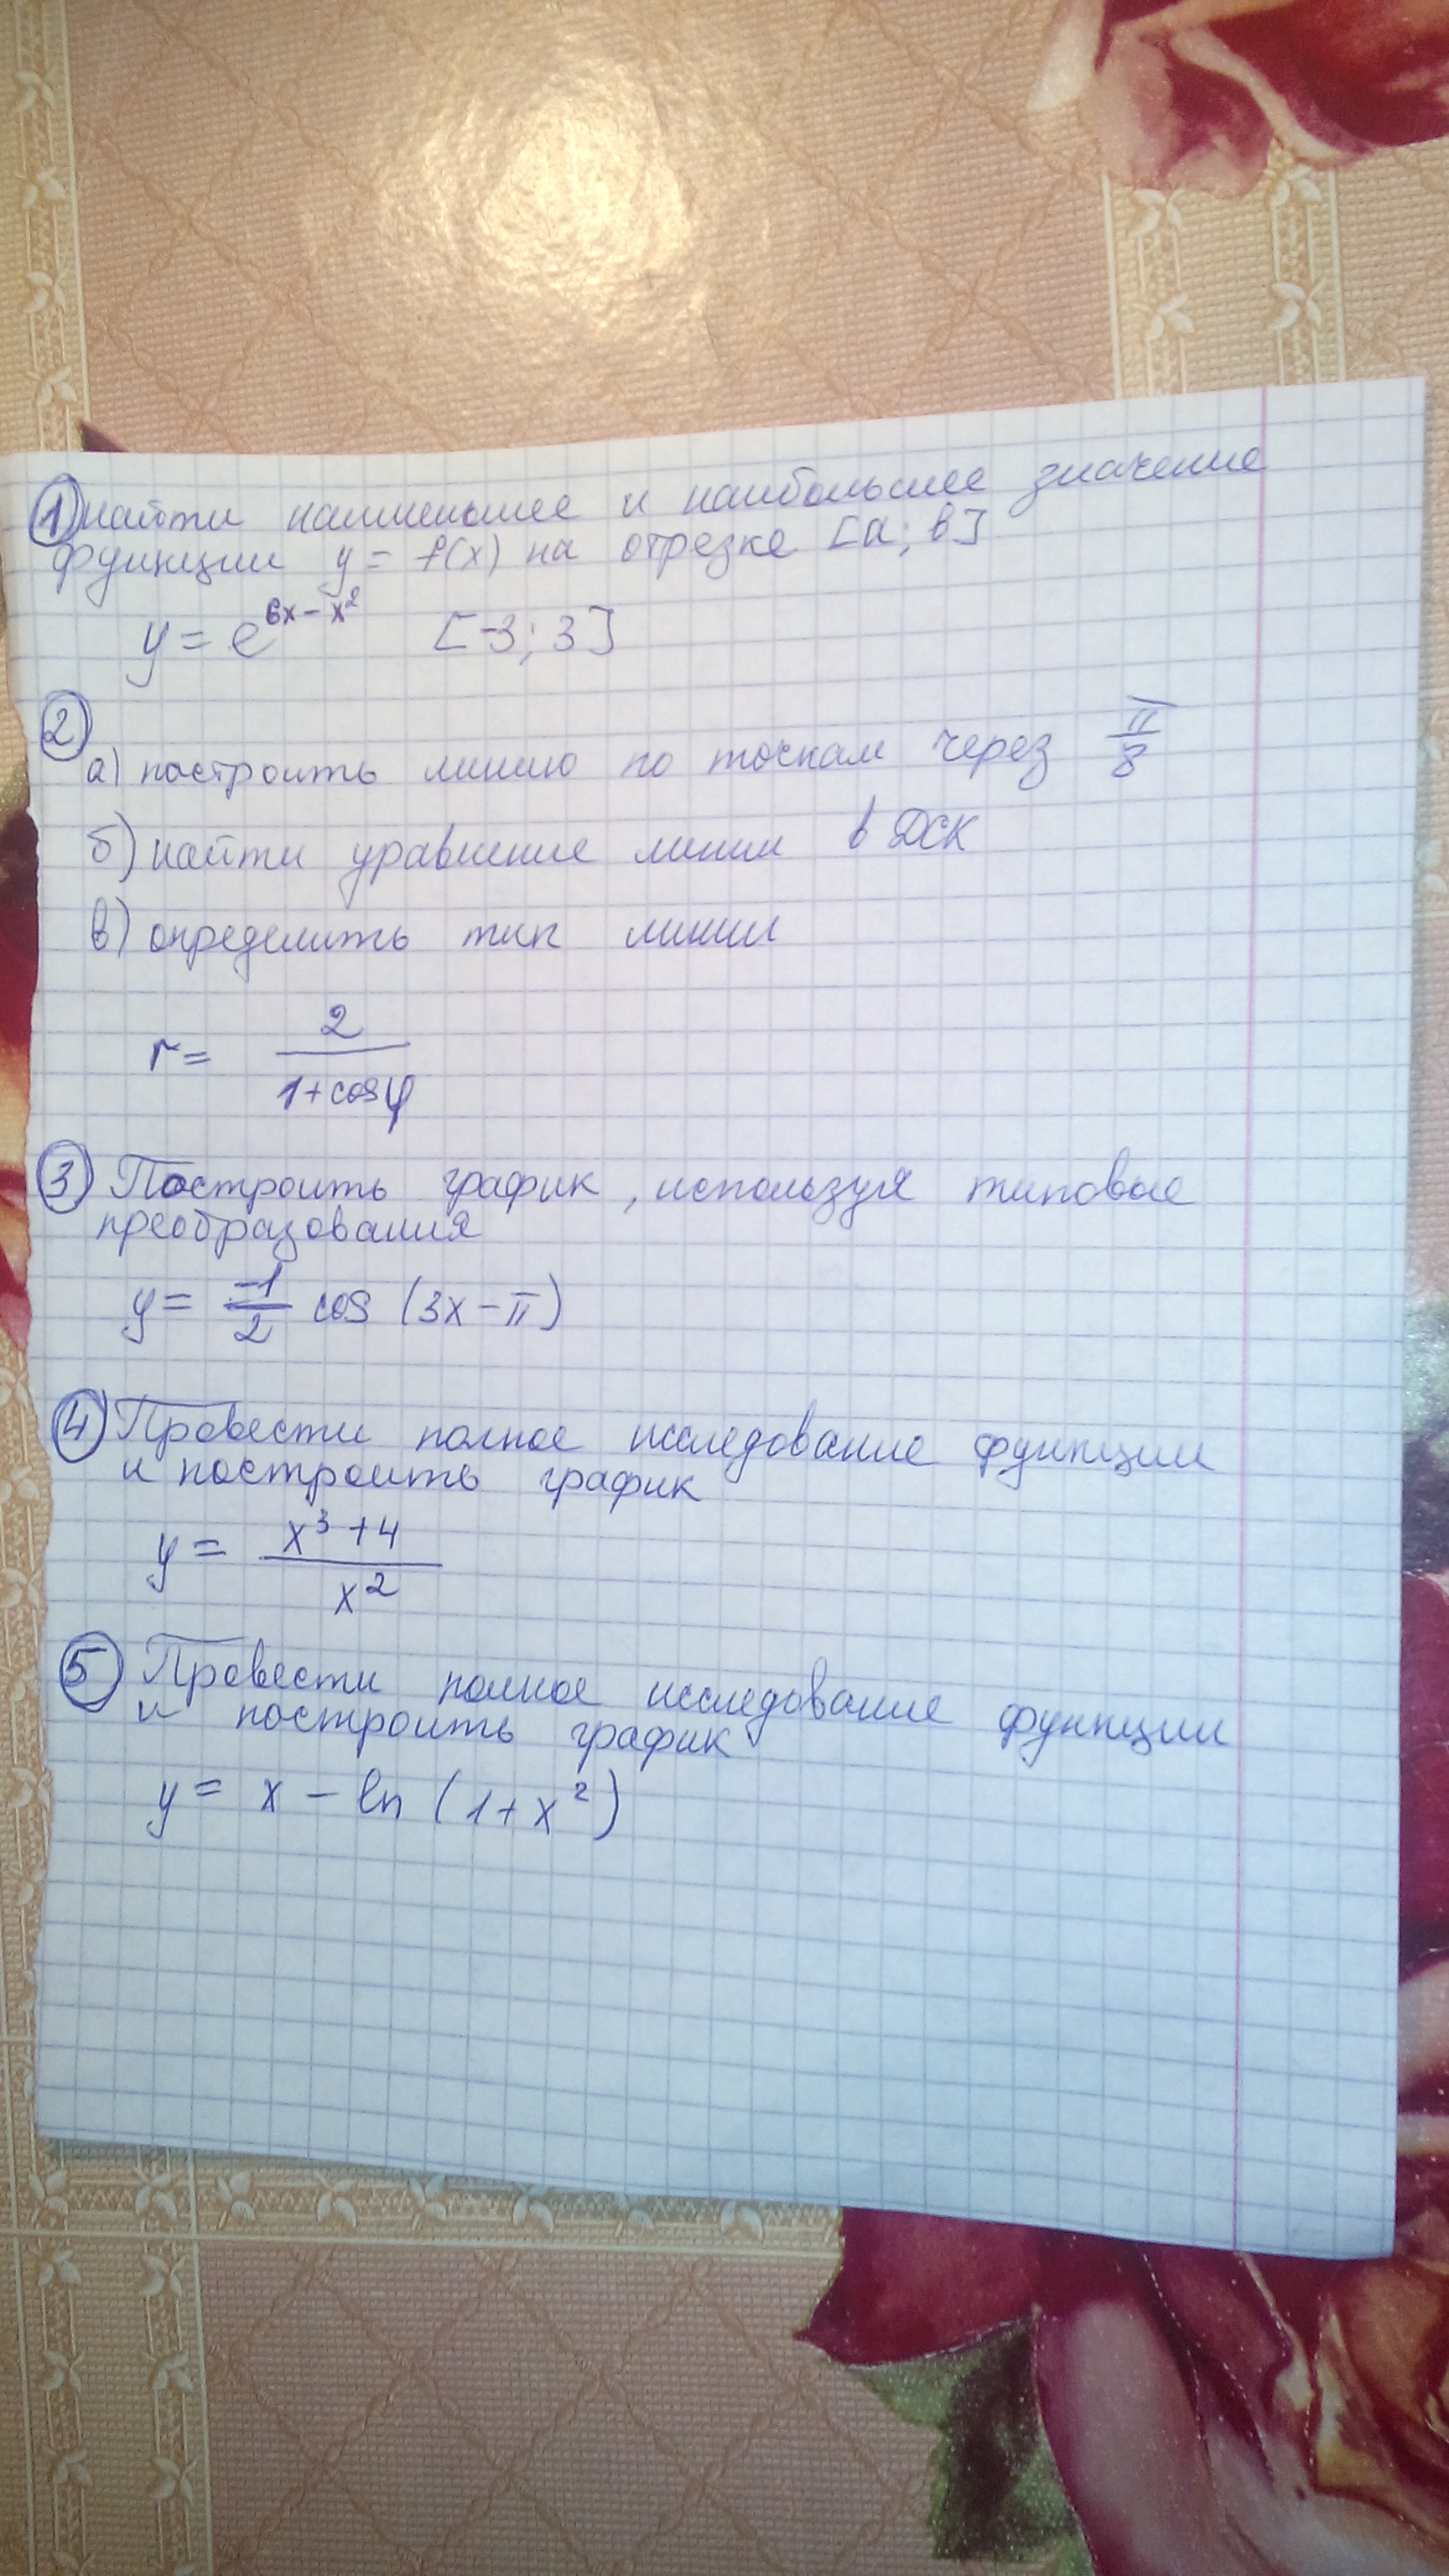 ① найти наименьшее и наибольшее значение
функции y = f(x) на отрезке [a; b]
y = e^{6x-x^2} [-3; 3]
②
а) построить линию по точкам через π/8
б) найти уравнение линии в ДСК
в) определить тип линии
r = 2/(1+cosφ)
③ Построить график, используя типовые
преобразования
y = -1/2 cos (3x-π)
④ Провести полное исследование функции
и построить график
y = (x^3+4)/x^2
⑤ Провести полное исследование функции
и построить график
y = x - ln (1+x^2)